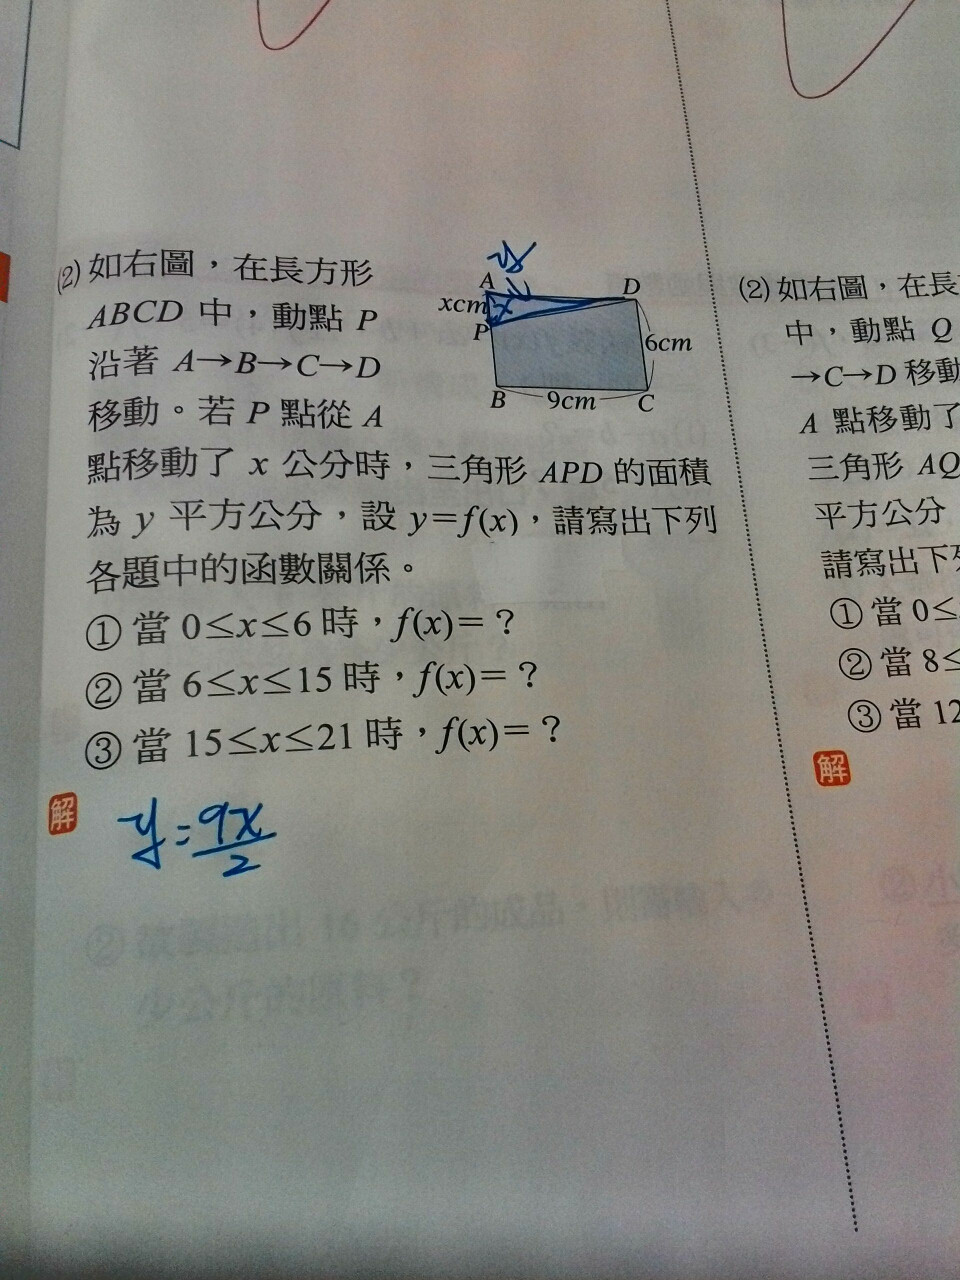 (2) 如右圖，在長方形
ABCD 中，動點 P
沿著 A→B→C→D
移動。若 P 點從 A
點移動了 x 公分時，三角形 APD 的面積
為 y 平方公分，設 y=f(x)，請寫出下列
各題中的函數關係。
① 當 0≤x≤6 時，f(x)=？
② 當 6≤x≤15 時，f(x)=？
③ 當 15≤x≤21 時，f(x)=？
A
D
xcm
x
P
6cm
B
9cm
C
解
y=9x/2
(2) 如右圖，在長
中，動點 Q
→C→D 移動
A 點移動了
三角形 AQ
平方公分
請寫出下
① 當 0≤
② 當 8≤
③ 當 12
解